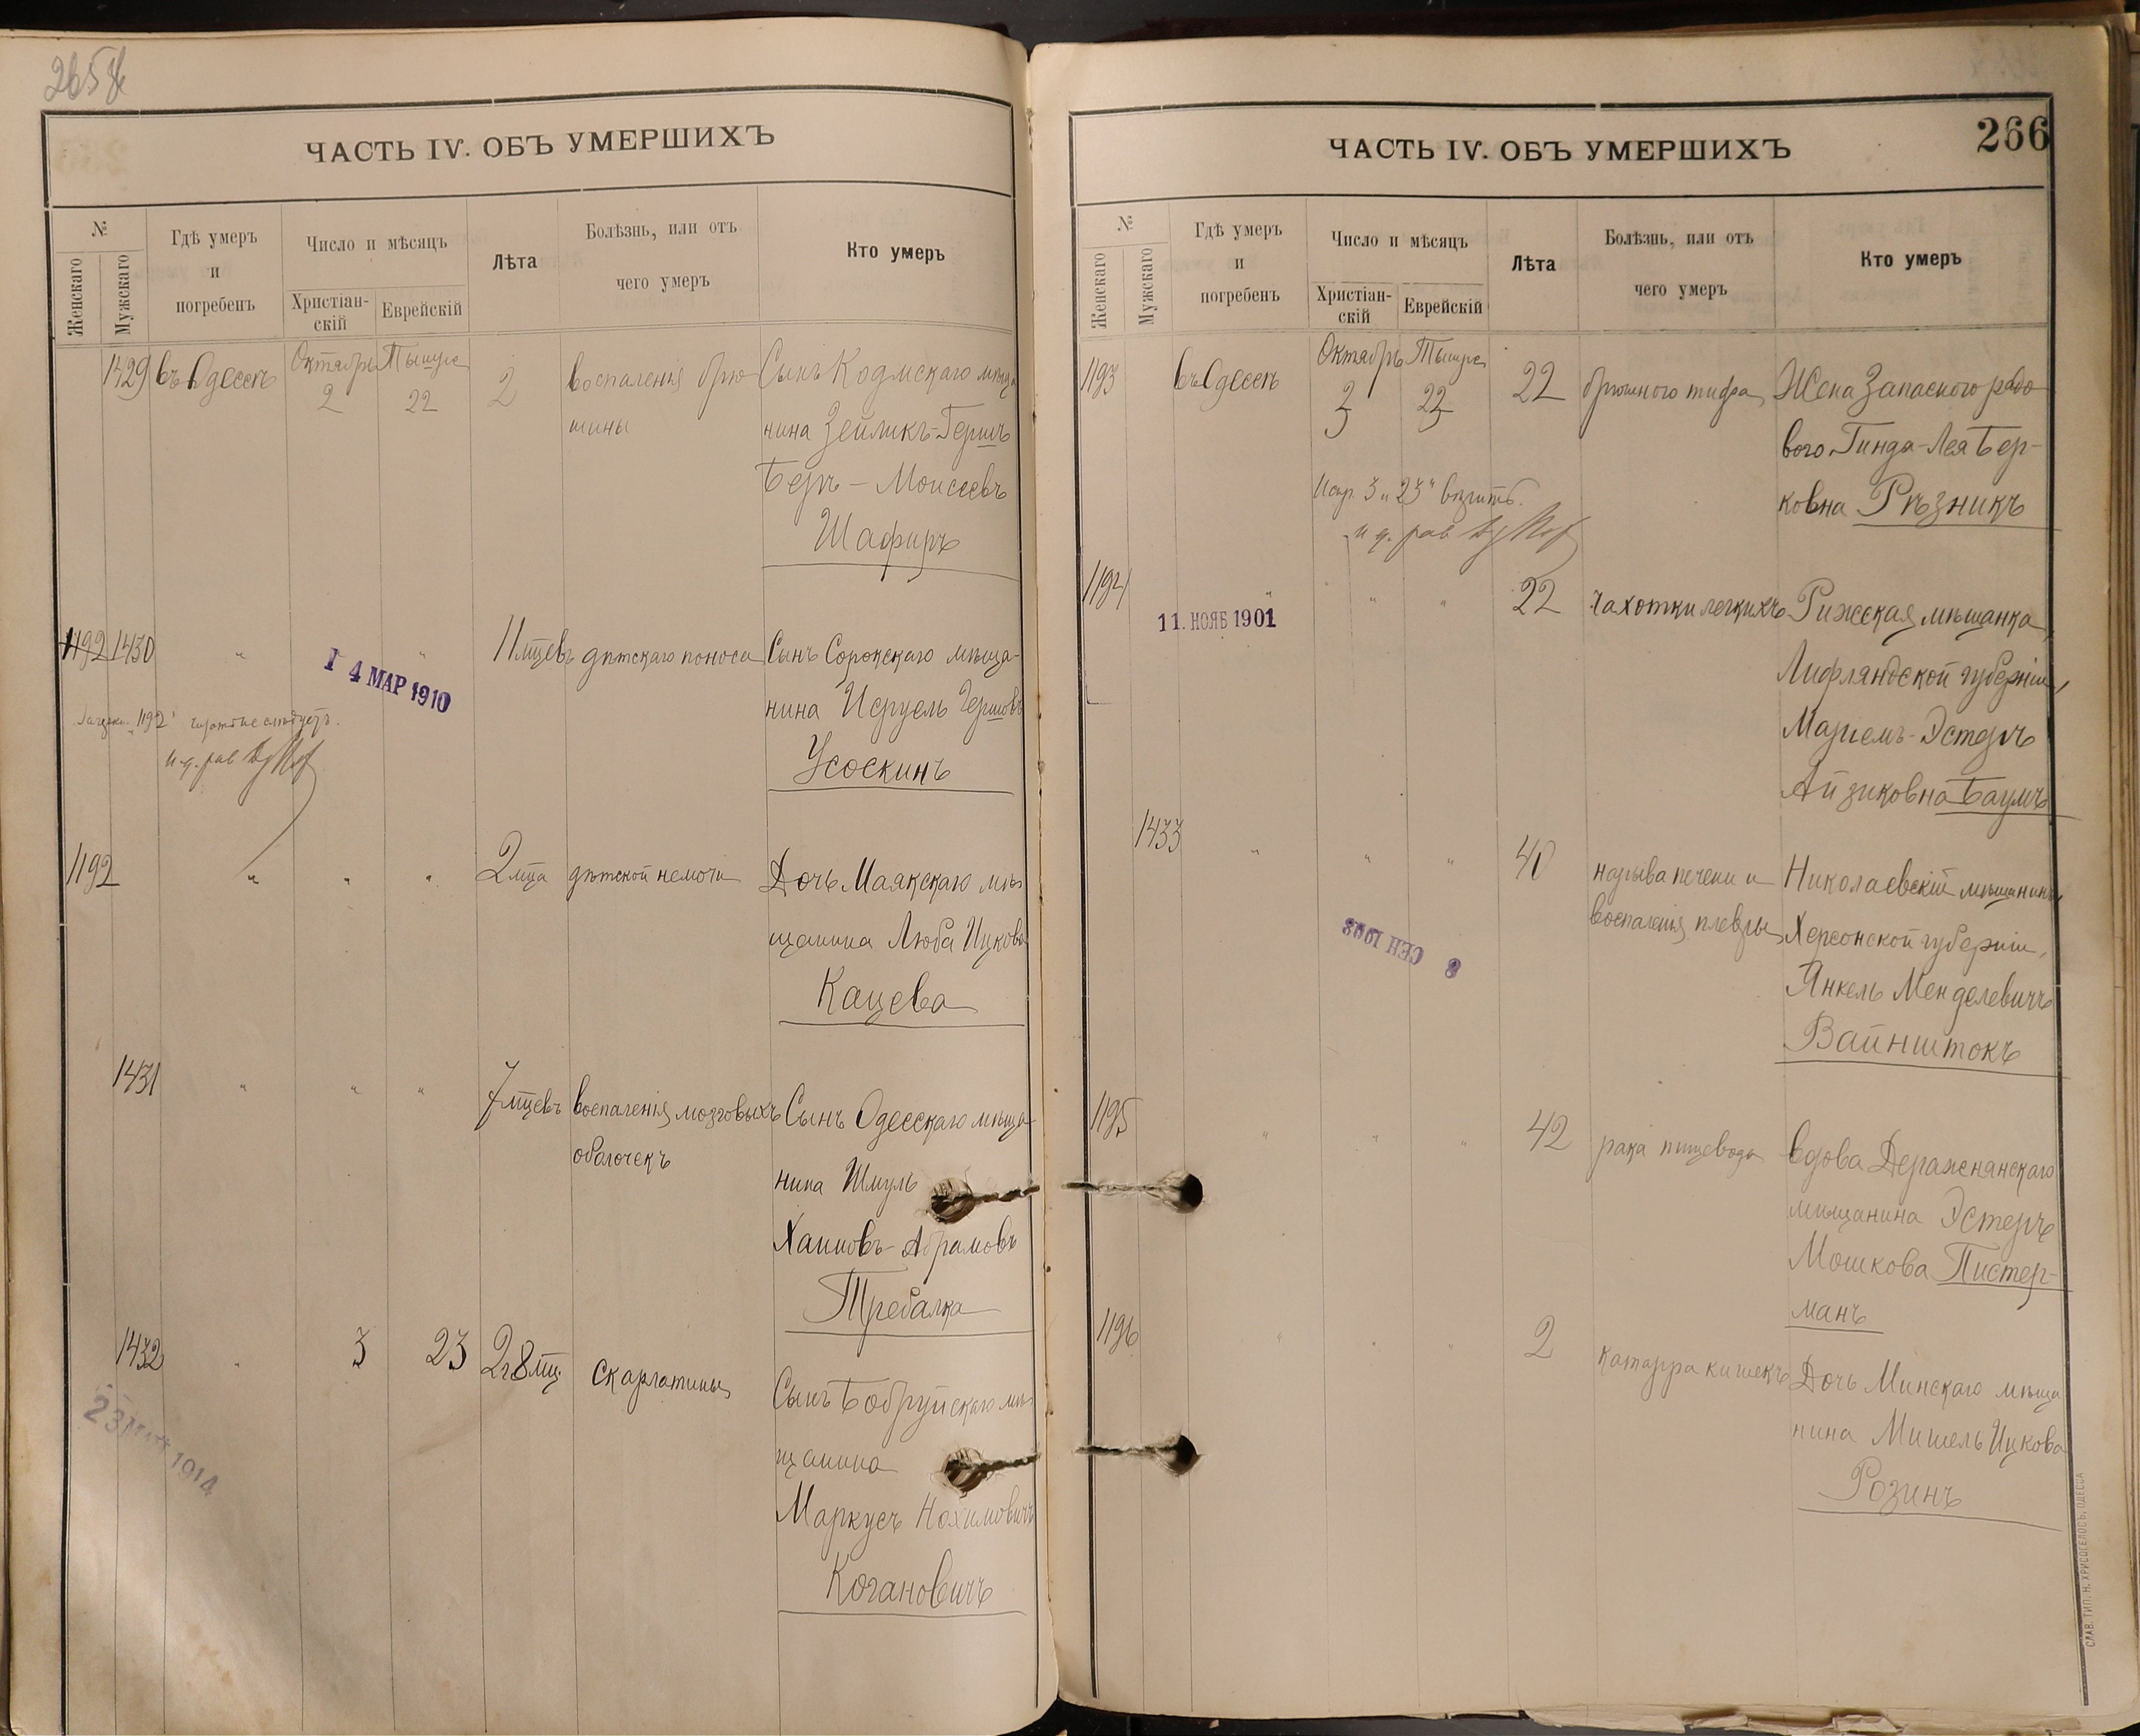 ЧАСТЬ IV. ОБЪ УМЕРШИХЪ
№
Женскаго
Мужскаго
Гдѣ умеръ
и
погребенъ
Число и мѣсяцъ
Христіан-
скій
Еврейскій
Лѣта
Болѣзнь, или отъ
чего умеръ
Кто умеръ
1429 въ Одессѣ Октябрь 2 22 2 воспаленія брю-
шины
Сынъ Кодмскаго мѣща
нина Зейликъ-Гершъ
Беръ-Моисеевъ
Шафиръ
1192 1430 " " 11 мцевъ дѣтскаго поноса
Сынъ Сорокскаго мѣща-
нина Исруель Гершовъ
Усоскинъ
1 4 МАР 1910
1192
и. д. рав
1192 " " " 2 мца дѣтской немочи
Дочь Маякскаго мѣ
щанина Люба Ицкова
Кацева
1431 " " " 7 мцевъ воспаленія мозговыхъ
оболочекъ
Сынъ Одесскаго мѣща
нина Шмуль
Хаимовъ-Абрамовъ
Требалка
1432 " 3 23 2 г 8 мц. скарлатины
Сынъ Бобруйскаго мѣ
щанина
Маркусъ Нохимовичъ
Когановичъ
1914
ЧАСТЬ IV. ОБЪ УМЕРШИХЪ
266
№
Женскаго
Мужскаго
Гдѣ умеръ
и
погребенъ
Число и мѣсяцъ
Христіан-
скій
Еврейскій
Лѣта
Болѣзнь, или отъ
чего умеръ
Кто умеръ
1193 въ Одессѣ Октябрь 3 23 22 брюшного тифа
Жена Запасного рядо
вого Гинда-Лея Бер-
ковна Рѣзникъ
3 " 23"
и. д. рав
1194 " " " 22 чахотки легкихъ
Рижская мѣщанка,
Лифляндской губерніи,
Маріемъ-Эстеръ
Айзиковна Баумъ
11. НОЯБ 1901
1433 " " " 40 нарыва печени и
воспаленія плевры
Николаевскій мѣщанинъ
Херсонской губерніи,
Янкель Менделевичъ
Вайнштокъ
8 СЕН 1908
1195 " " " 42 рака пищевода
вдова Деражнянскаго
мѣщанина Эстеръ
Мошкова Пистер-
манъ
1196 " " " 2 катарра кишекъ
Дочь Минскаго мѣща
нина Мишель Ицкова
Розинъ
СЛАВ. ТИП. Н. ХРИСОГЕЛОСЪ, ОДЕССА